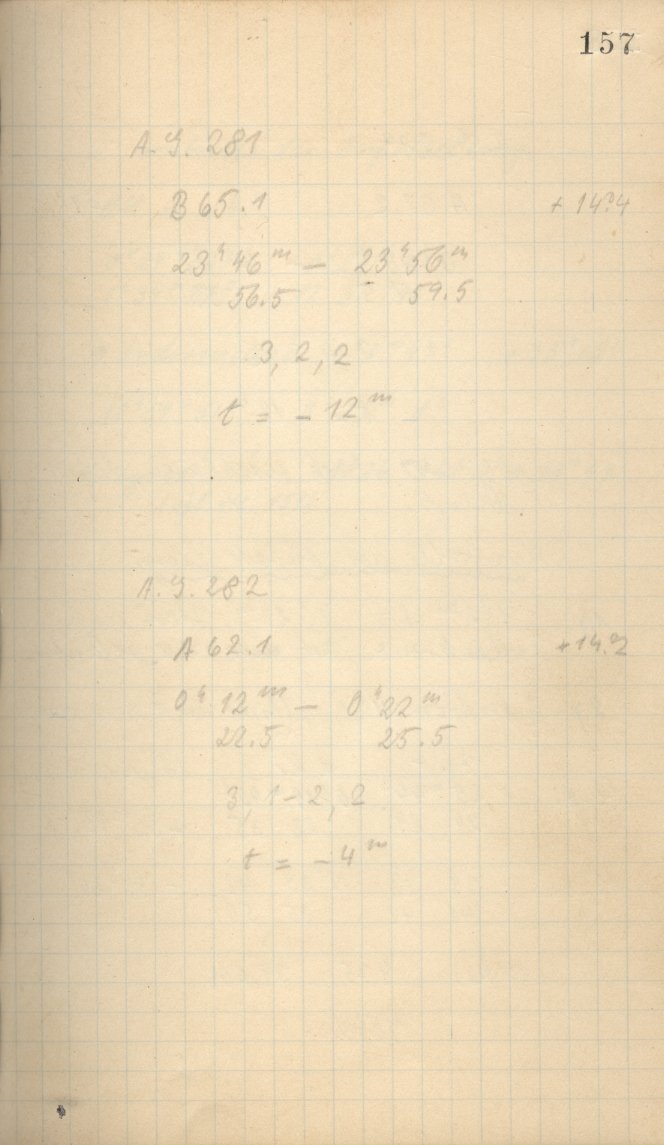 157
A. G. 281
B 65.1 + 14°.4
23ʰ 46ᵐ — 23ʰ 56ᵐ
56.5 59.5
3, 2, 2
t = - 12ᵐ
A. G. 282
A 62.1 + 14°.2
0ʰ 12ᵐ — 0ʰ 22ᵐ
22.5 25.5
3, 1-2, 2
t = - 4ᵐ